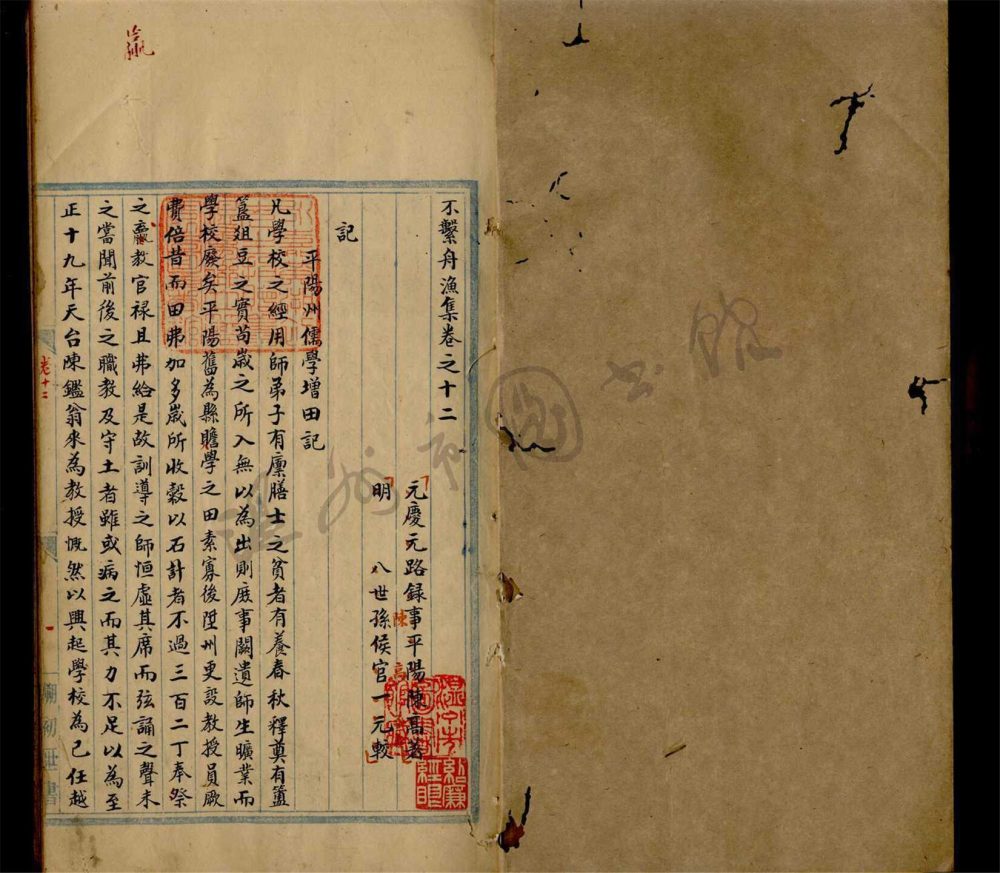 不繫舟漁集卷之十二
元慶元路録事平陽陳高著
明 八世孫侯官一元較
陳
高
記
平陽州儒學增田記
凡學校之經用師弟子有廩膳士之貧者有養春秋釋奠有簠
簋俎豆之實茍歲之所入無以為出則庶事闕遺師生曠業而
學校廢矣平陽舊為縣贍學之田素寡後陞州更設教授員厥
費倍昔而田弗加多歲所收穀以石計者不過三百二丁奉祭
之𥻘教官禄且弗給是故訓導之師恒虛其席而弦誦之聲未
之嘗聞前後之職教及守土者雖或病之而其力不足以為至
正十九年天台陳鑑翁來為教授慨然以興起學校為己任越
卷十二
一